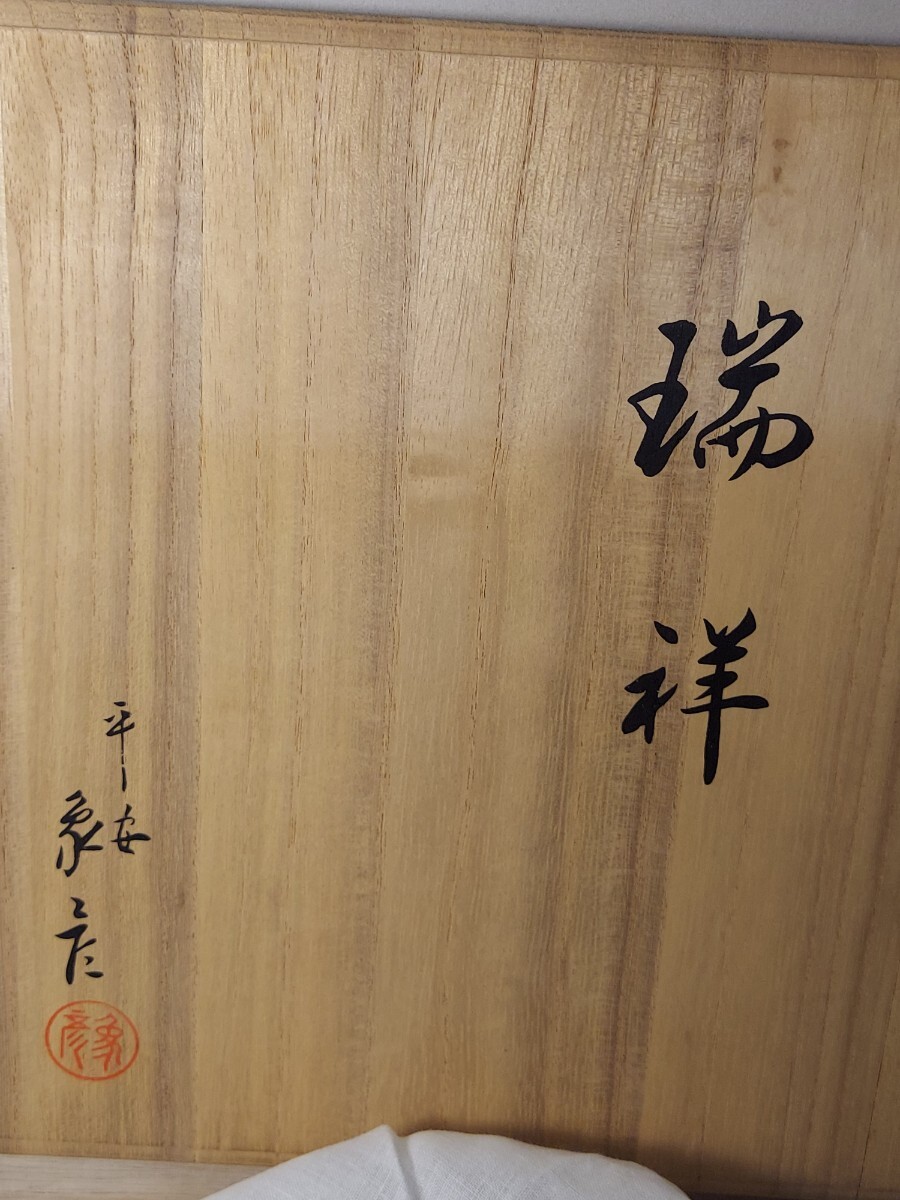 瑞祥
平安
象彦
象彦